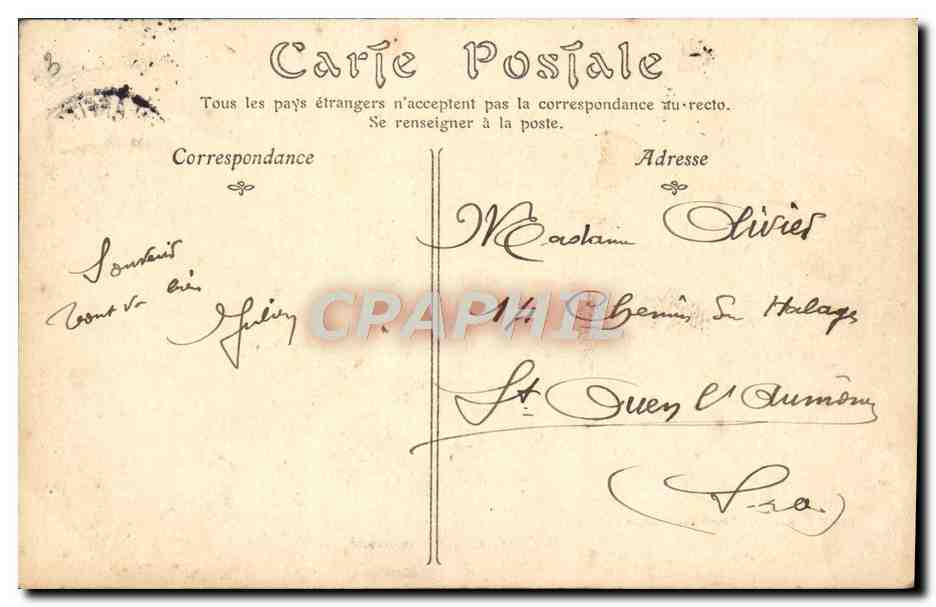 Carte Postale
Tous les pays étrangers n'acceptent pas la correspondance au recto.
Se renseigner à la poste.
Correspondance
Adresse
Souvenir
tout va bien
Madame Olivier
14 Chemin du Halage
St Ouen l'Aumône
(S-&-O)
CPAPHIL